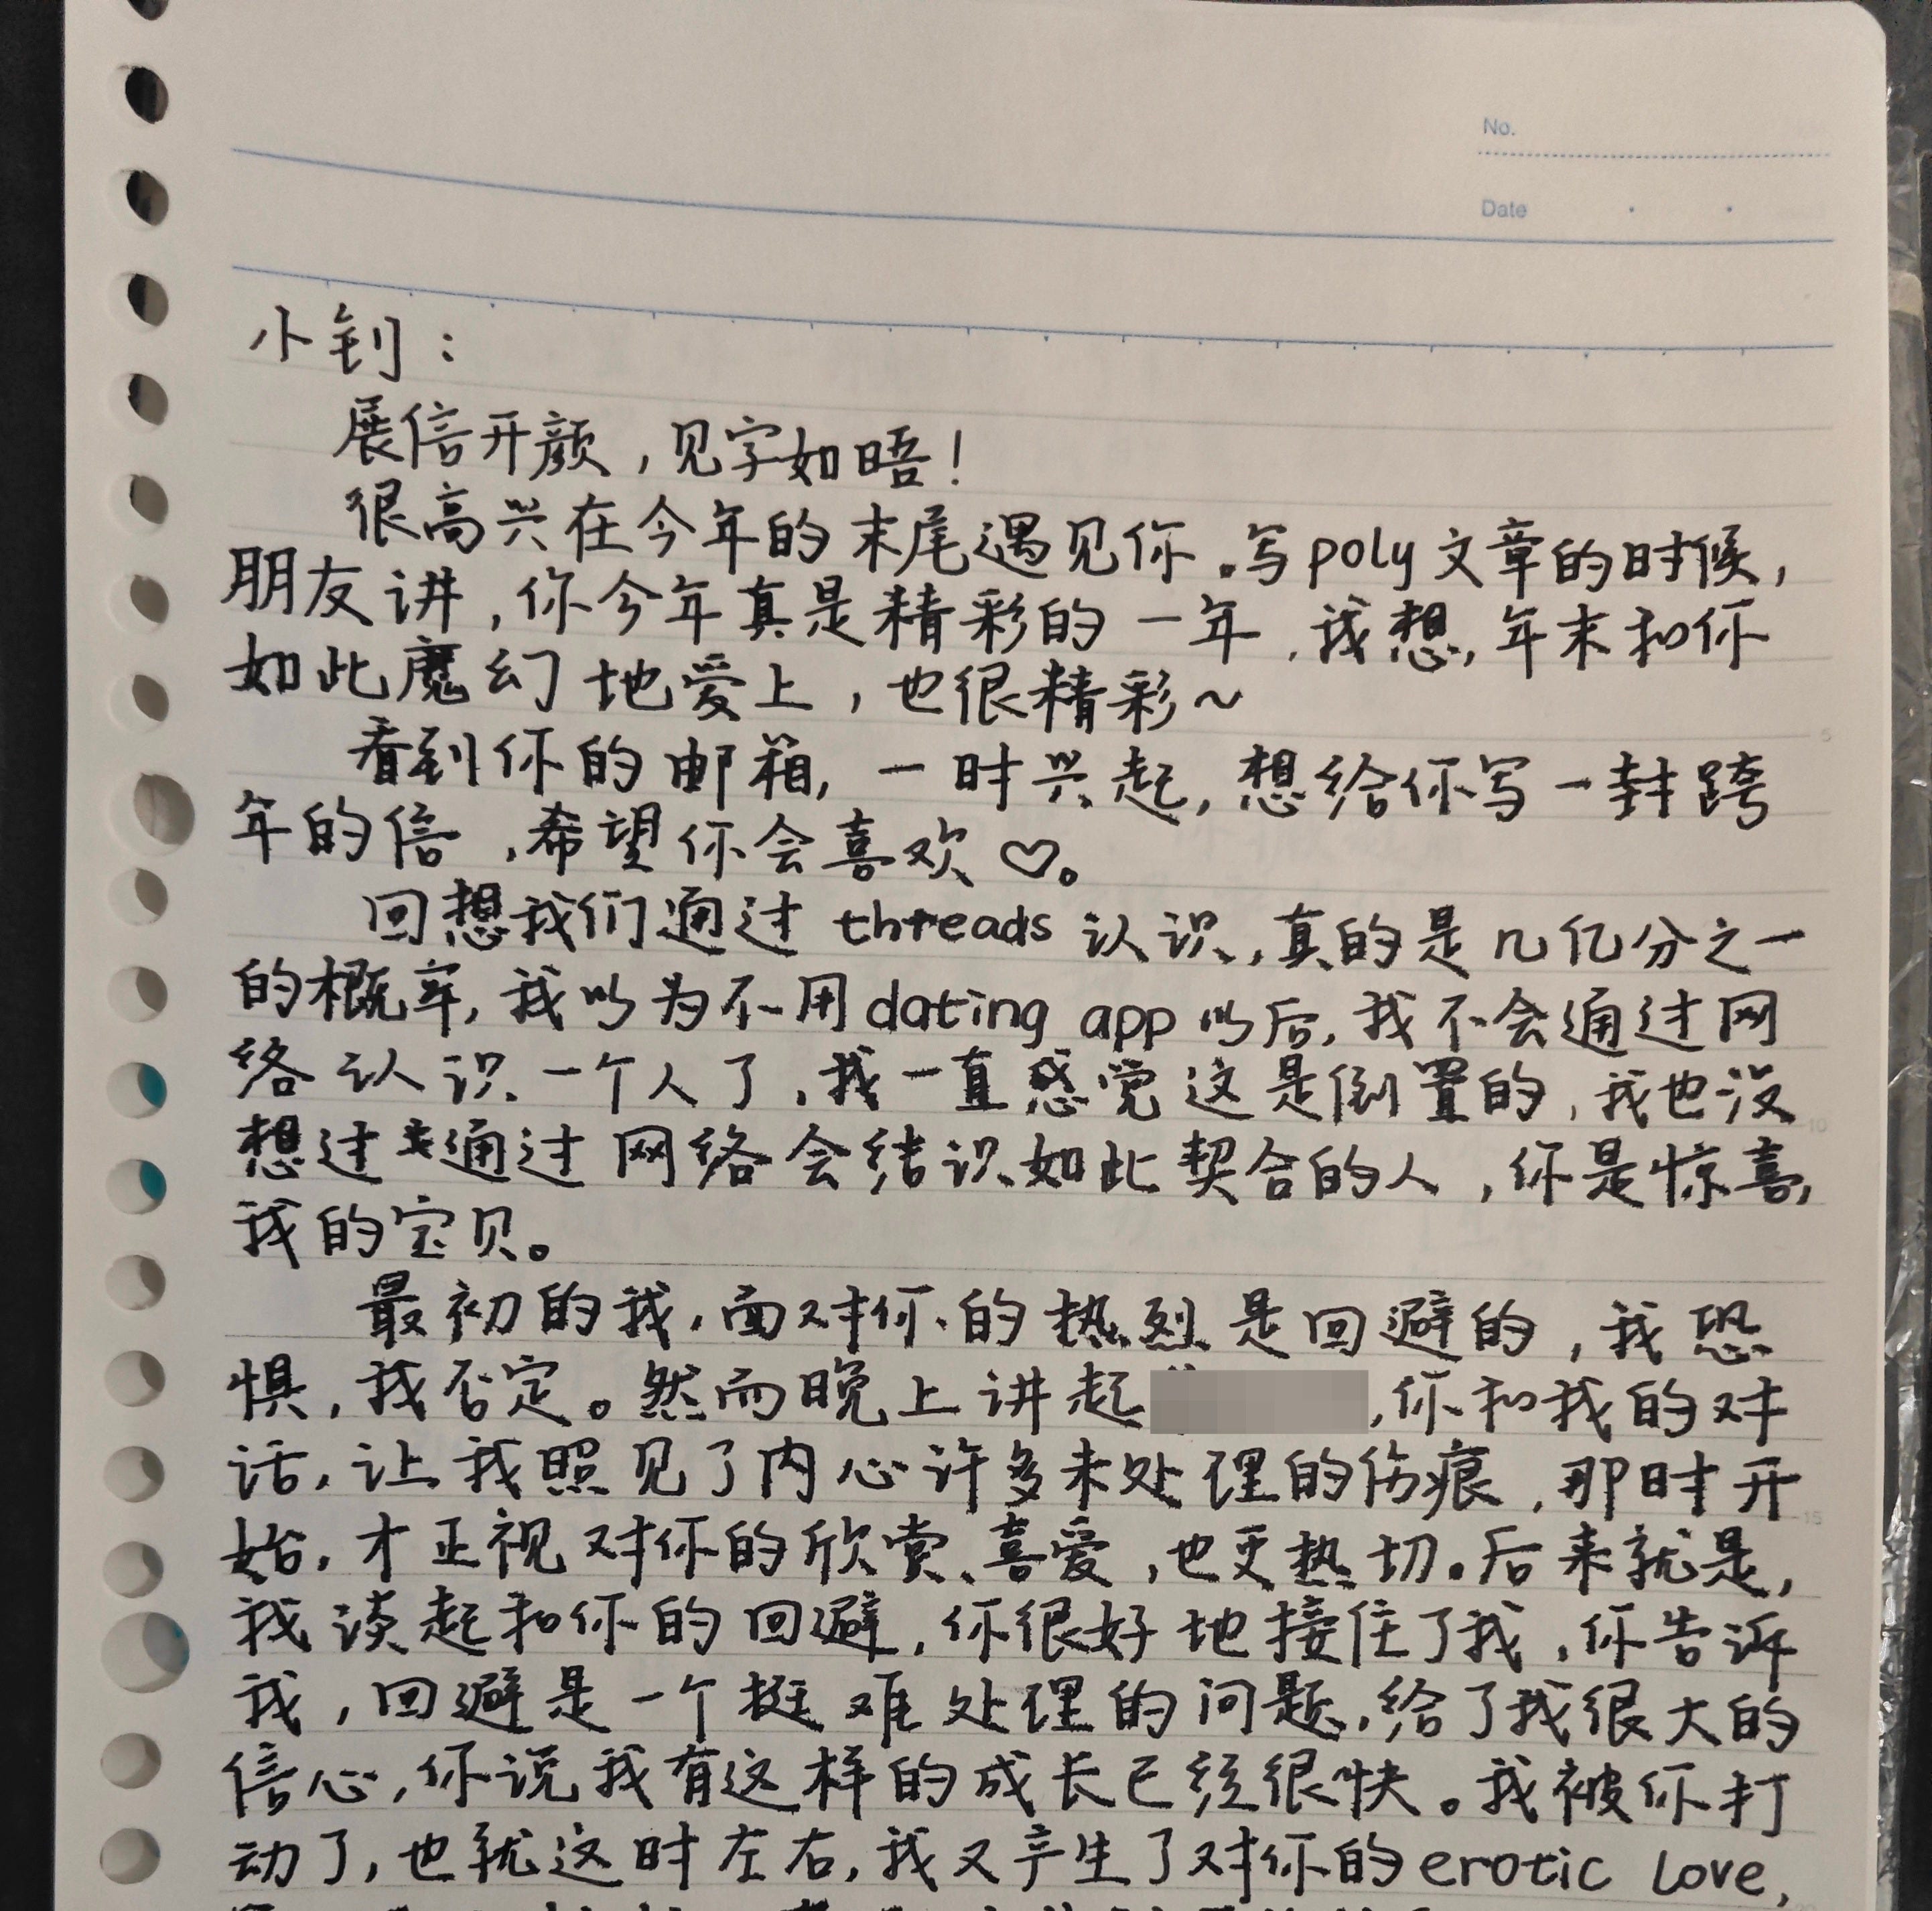 No.
Date
小钊：
展信开颜，见字如晤！
很高兴在今年的末尾遇见你。写poly文章的时候，
朋友讲，你今年真是精彩的一年，我想，年末和你
如此魔幻地爱上，也很精彩～
看到你的邮箱，一时兴起，想给你写一封跨
年的信，希望你会喜欢♡。
回想我们通过threads认识，真的是几亿分之一
的概率，我以为不用dating app以后，我不会通过网
络认识一个人了，我一直感觉这是倒置的，我也没
想过通过网络会结识如此契合的人，你是惊喜，
我的宝贝。
最初的我，面对你的热烈是回避的，我恐
惧，我否定。然而晚上讲起，你和我的对
话，让我照见了内心许多未处理的伤痕，那时开
始，才正视对你的欣赏、喜爱，也更热切。后来就是，
我谈起和你的回避，你很好地接住了我，你告诉
我，回避是一个挺难处理的问题，给了我很大的
信心，你说我有这样的成长已经很快。我被你打
动了，也就这时左右，我又产生了对你的erotic love，
5
10
15